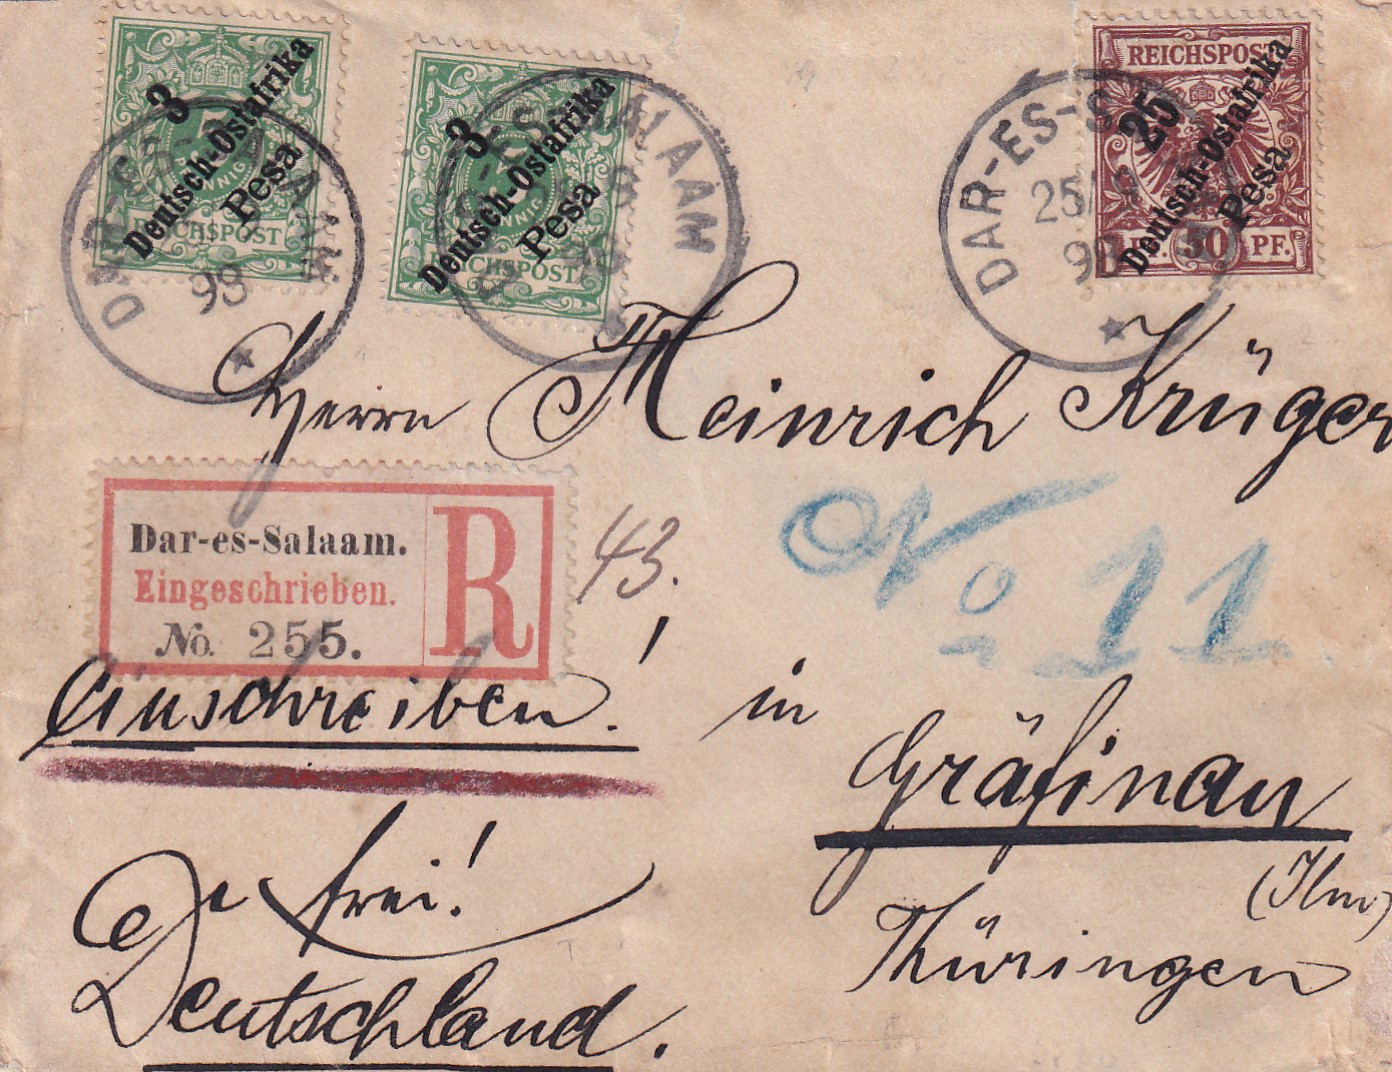 3
Deutsch-Ostafrika
Pesa
PFENNIG
REICHSPOST
3
Deutsch-Ostafrika
Pesa
PFENNIG
REICHSPOST
REICHSPOST
25
Deutsch-Ostafrika
Pesa
50 PF.
DAR-ES-SALAAM
98
DAR-ES-SALAAM
DAR-ES-S
25
Herrn Heinrich Krüger
Dar-es-Salaam.
Eingeschrieben.
No. 255.
R
43.
No 11
Einschreiben!
in Gräfinau
(Ilm)
Thüringen
frei!
Deutschland.